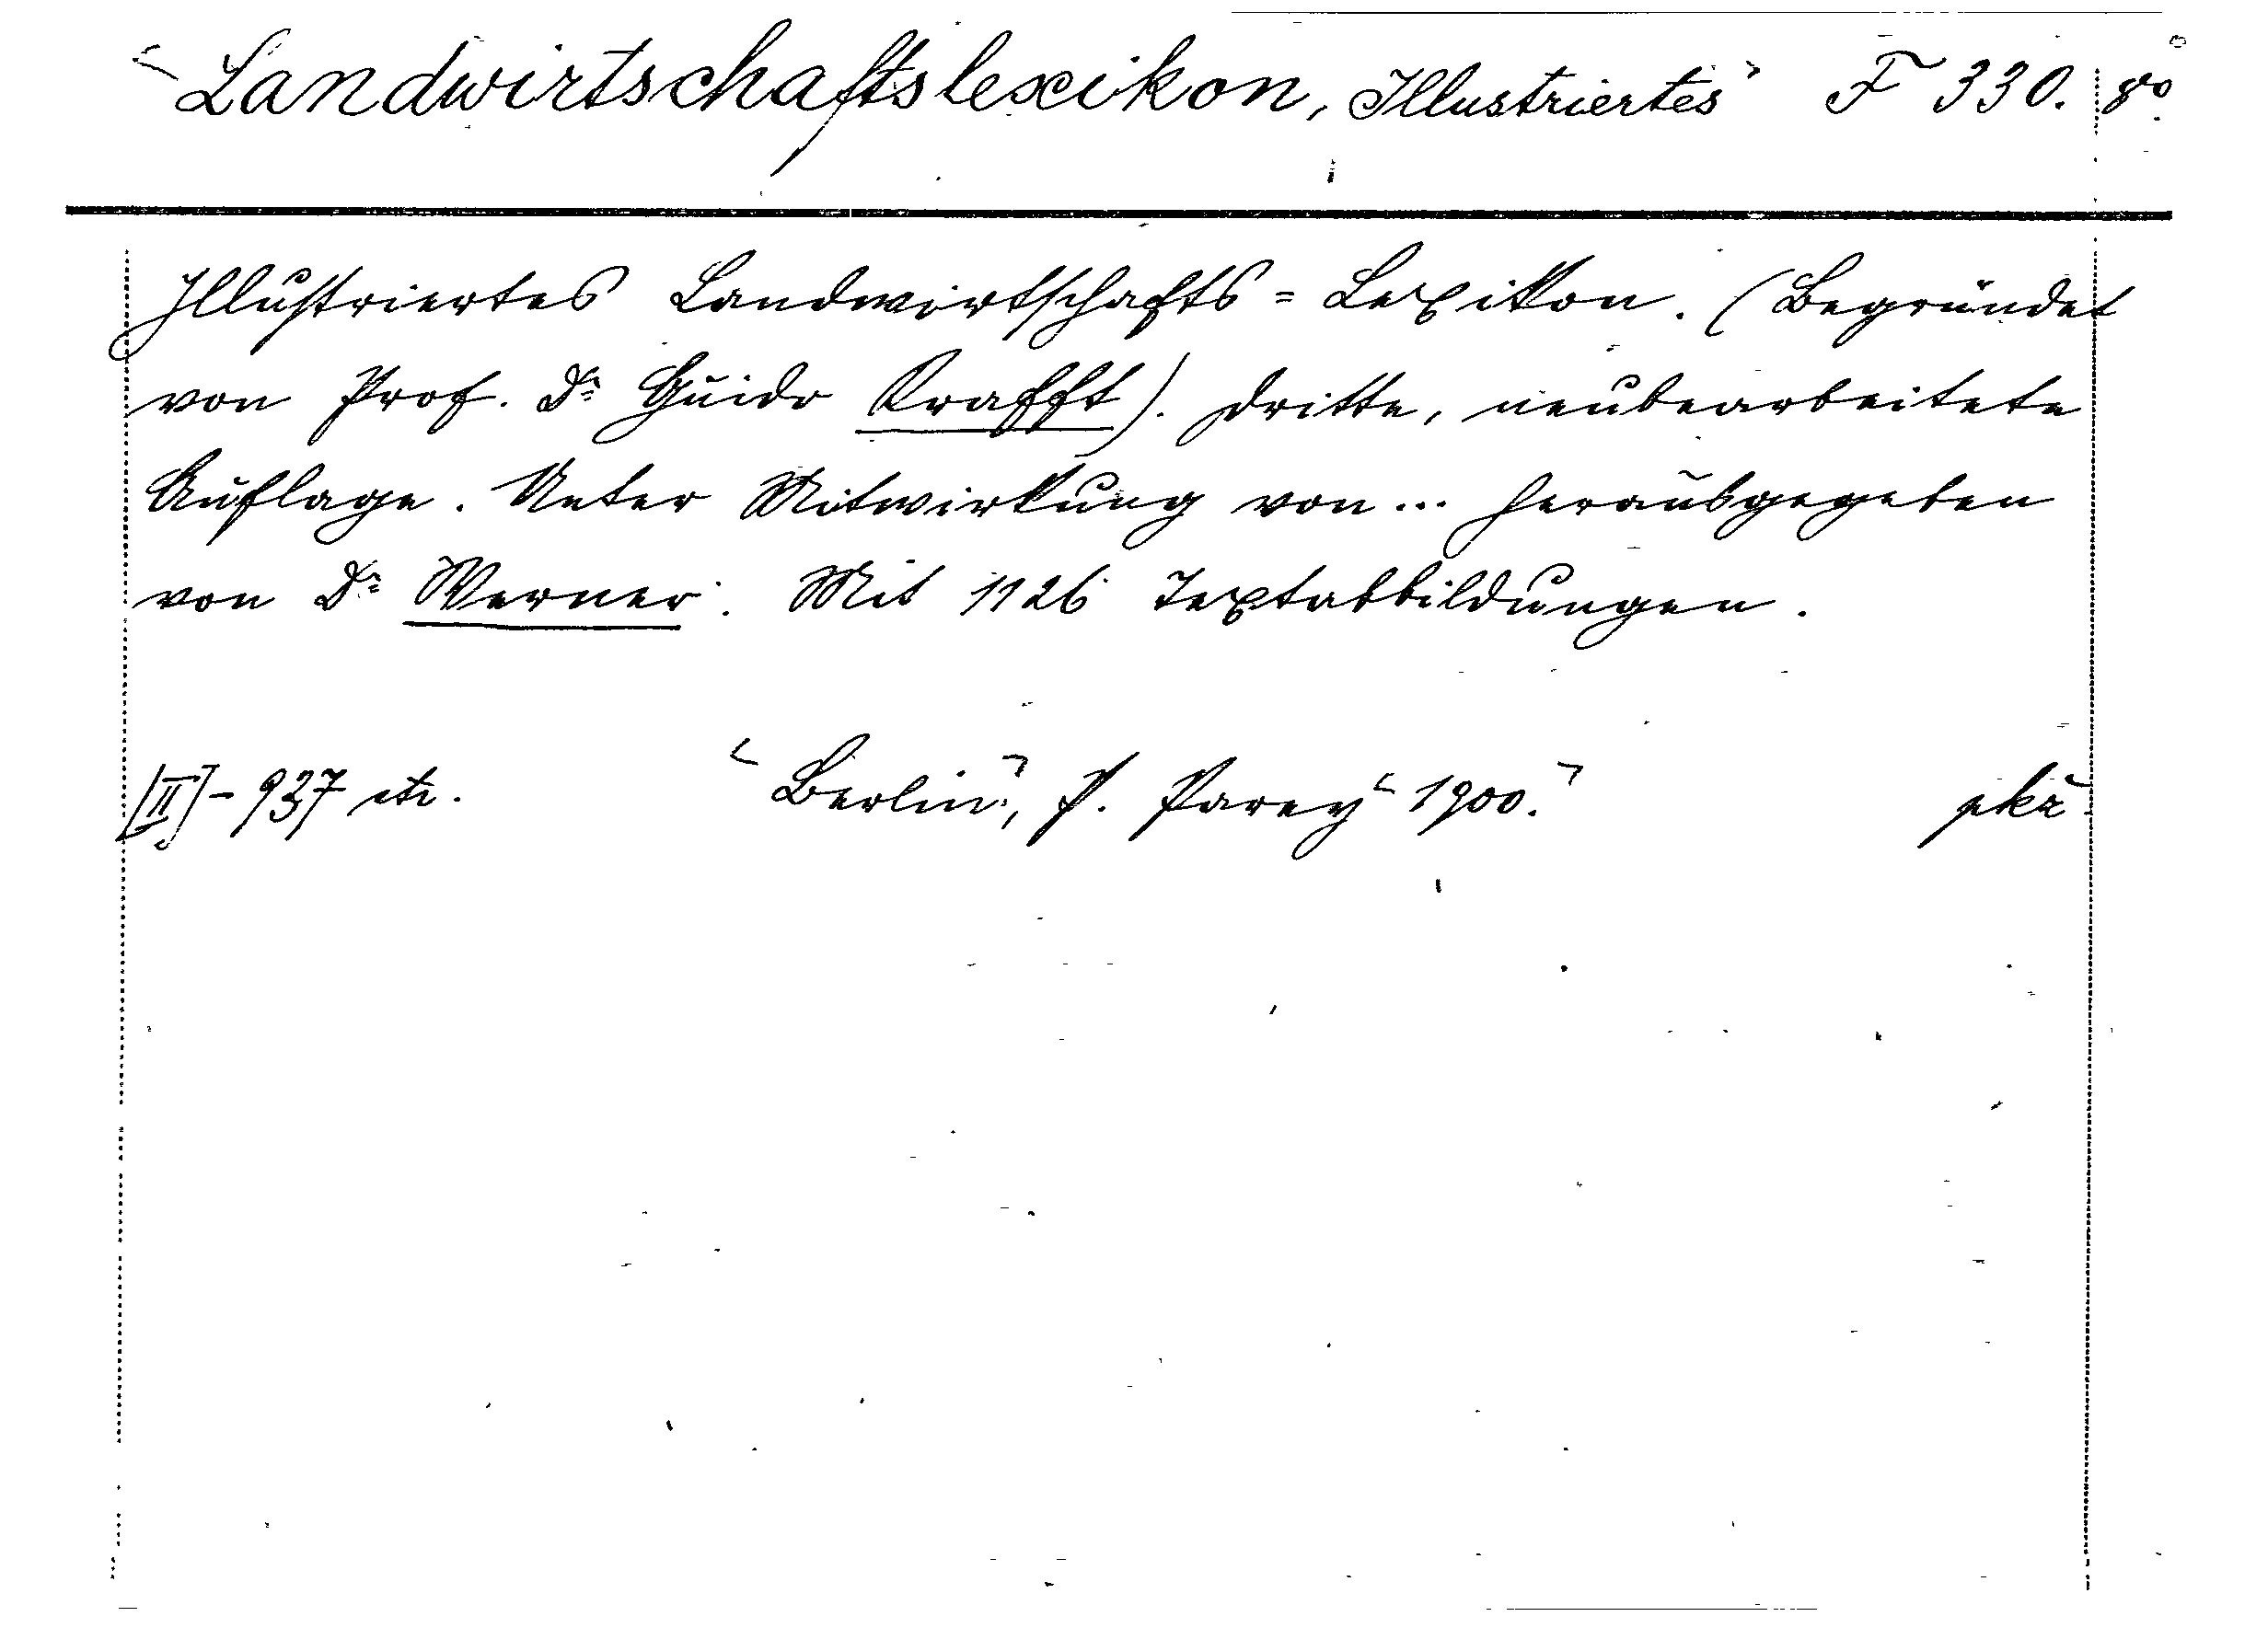 "Landwirtschaftslexikon, Illustriertes" F 330. 8º.
Illustriertes Landwirtschafts=Lexikon. (Begründet
von Prof. Dr Guido Krafft). Dritte, neubearbeitete
Auflage. Unter Mitwirkung von... herausgegeben
von Dr Werner. Mit 1126 Textabbildungen.
[II]-937 etc. "Berlin", P. Parey "1900."